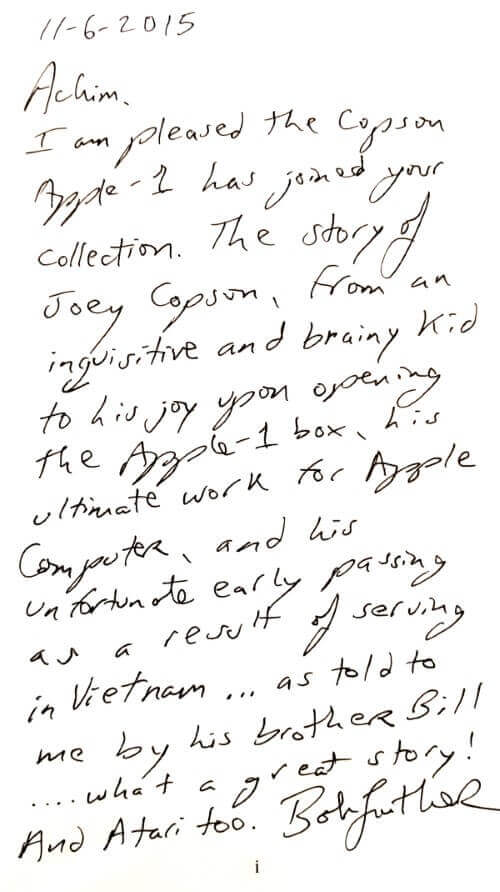 11-6-2015
Achim.
I am pleased the Copson
Apple-1 has joined your
collection. The story of
Joey Copson, from an
inquisitive and brainy kid
to his joy upon opening
the Apple-1 box, his
ultimate work for Apple
Computer, and his
unfortunate early passing
as a result of serving
in Vietnam ... as told to
me by his brother Bill
.... what a great story!
And Atari too. Bob Luther
i